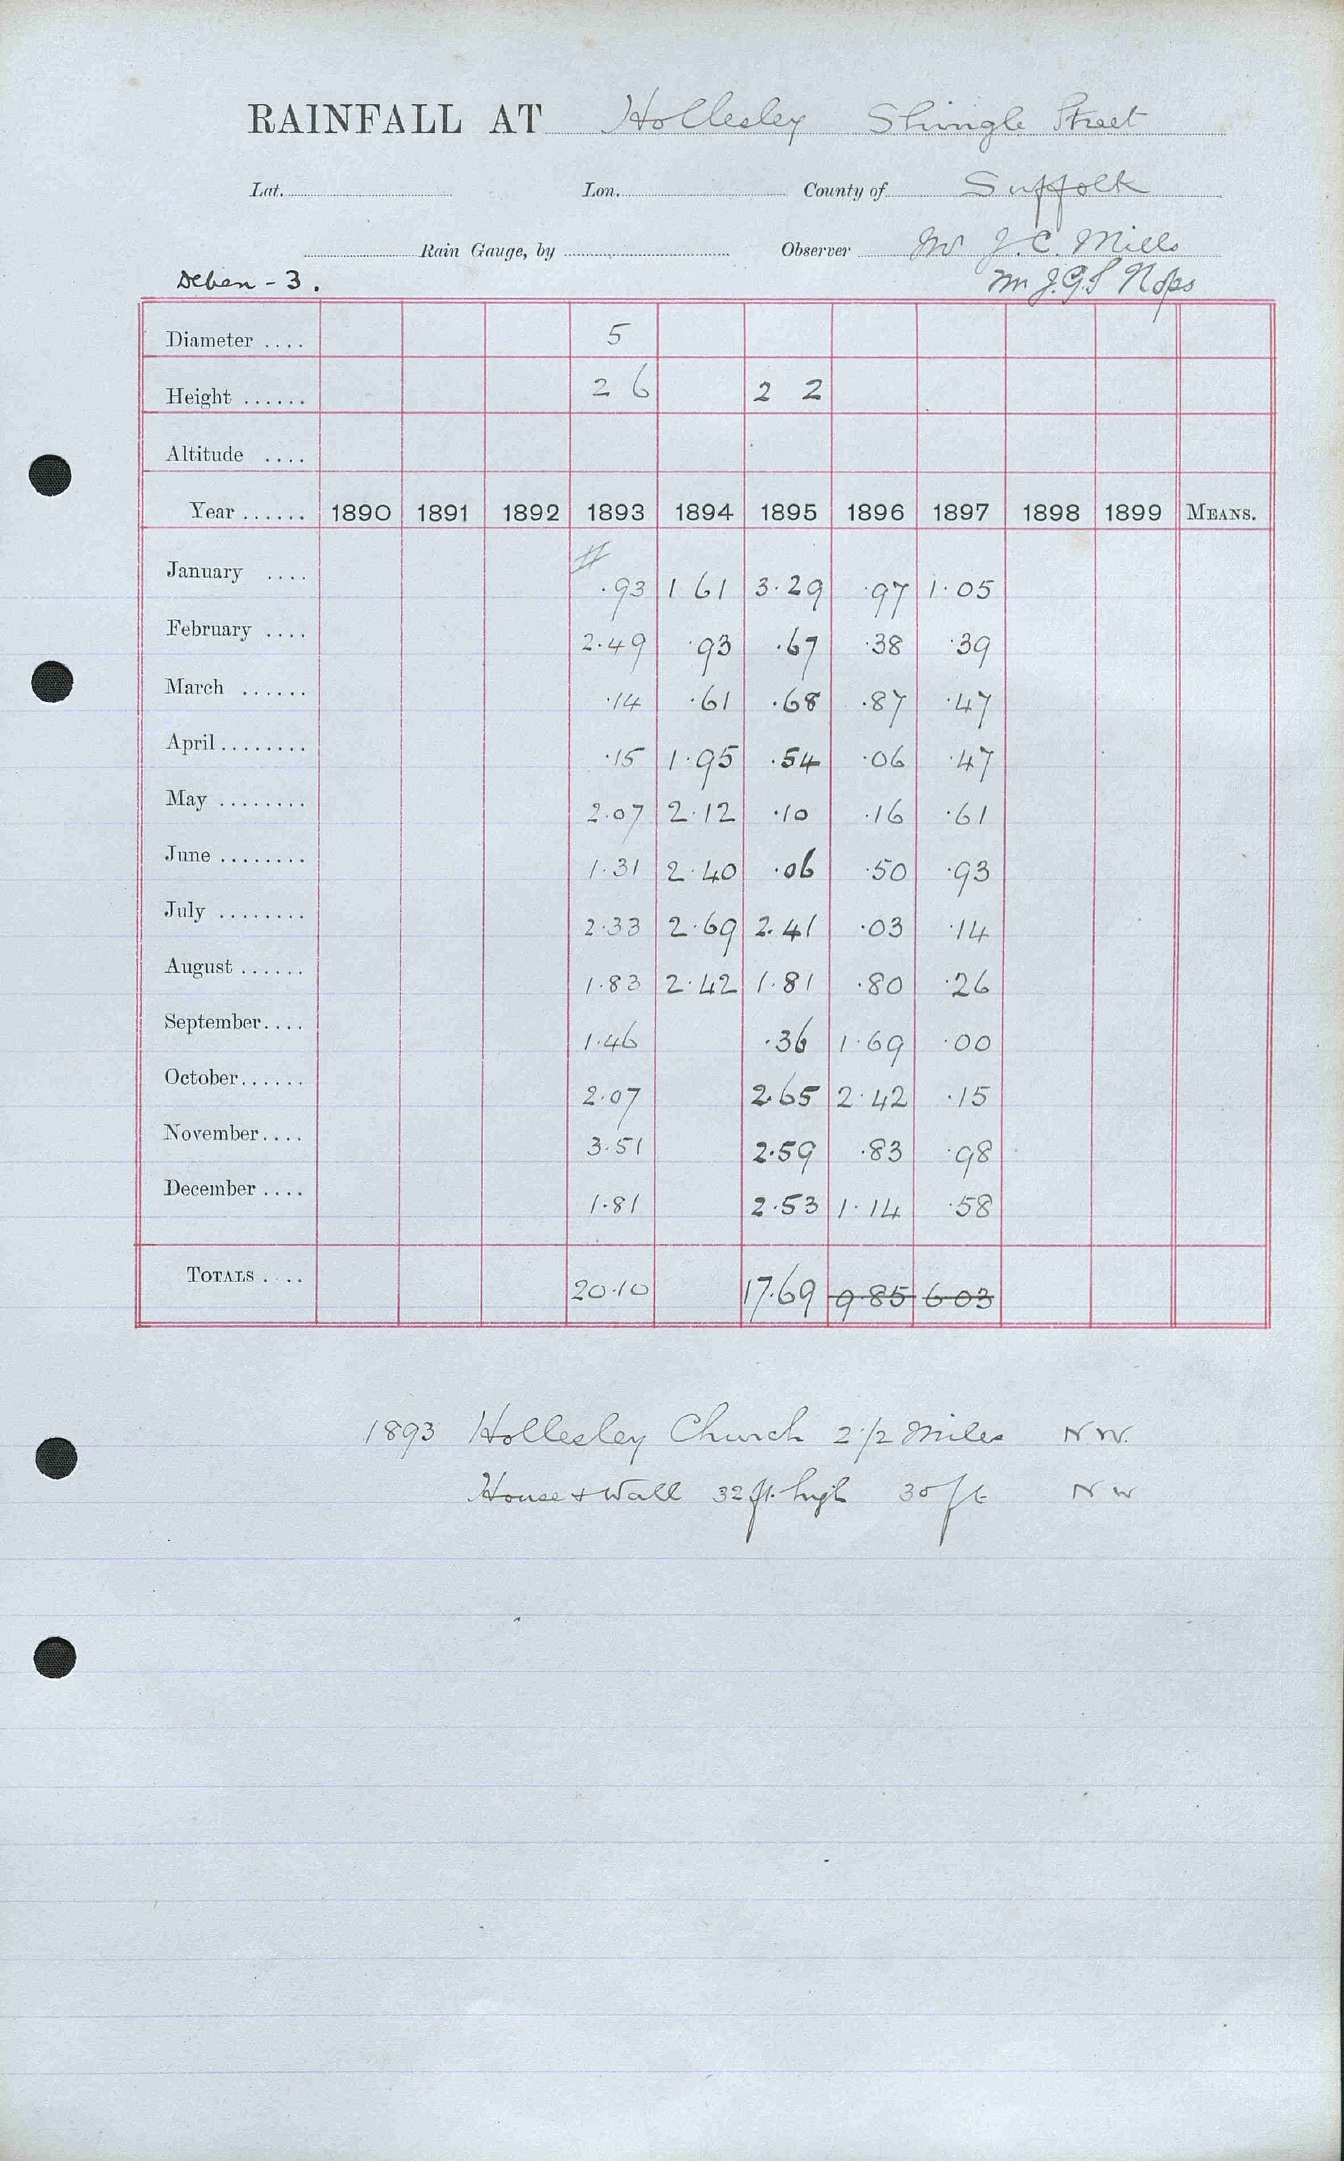 RAINFALL AT Hollesley Shingle Street
Lat. Lon. County of Suffolk
Rain Gauge, by Observer Mr J. C. Mills
Deben - 3. Mr J.G.S
Diameter .... 5
Height ...... 2 6 2 2
Altitude ....
Year ...... 1890 1891 1892 1893 1894 1895 1896 1897 1898 1899 MEANS.
January .... .93 1 61 3.29 .97 1.05
February .... 2.49 .93 .67 .38 .39
March ...... .14 .61 .68 .87 .47
April ........ .15 1.95 .54 .06 .47
May ........ 2.07 2.12 .10 .16 .61
June ........ 1.31 2.40 .06 .50 .93
July ........ 2.33 2.69 2.41 .03 .14
August ...... 1.83 2.42 1.81 .80 .26
September.... 1.46 .36 1.69 .00
October...... 2.07 2.65 2.42 .15
November.... 3.51 2.59 .83 .98
December .... 1.81 2.53 1.14 .58
TOTALS .... 20.10 17.69 9.85 6.03
1893 Hollesley Church 2 1/2 Miles NW.
House & Wall 32 ft. high 30 ft NW